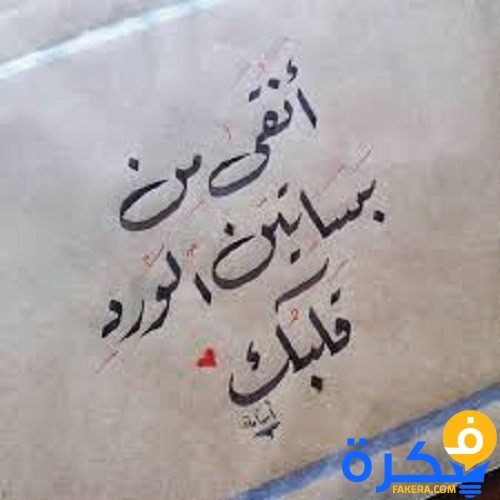 أنقى من
بساتين الورد
قلبك
أسامة
فكرة
FAKERA.COM